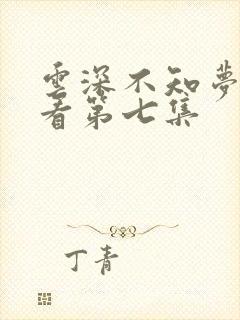 雲深不知夢
看第七集
丁青